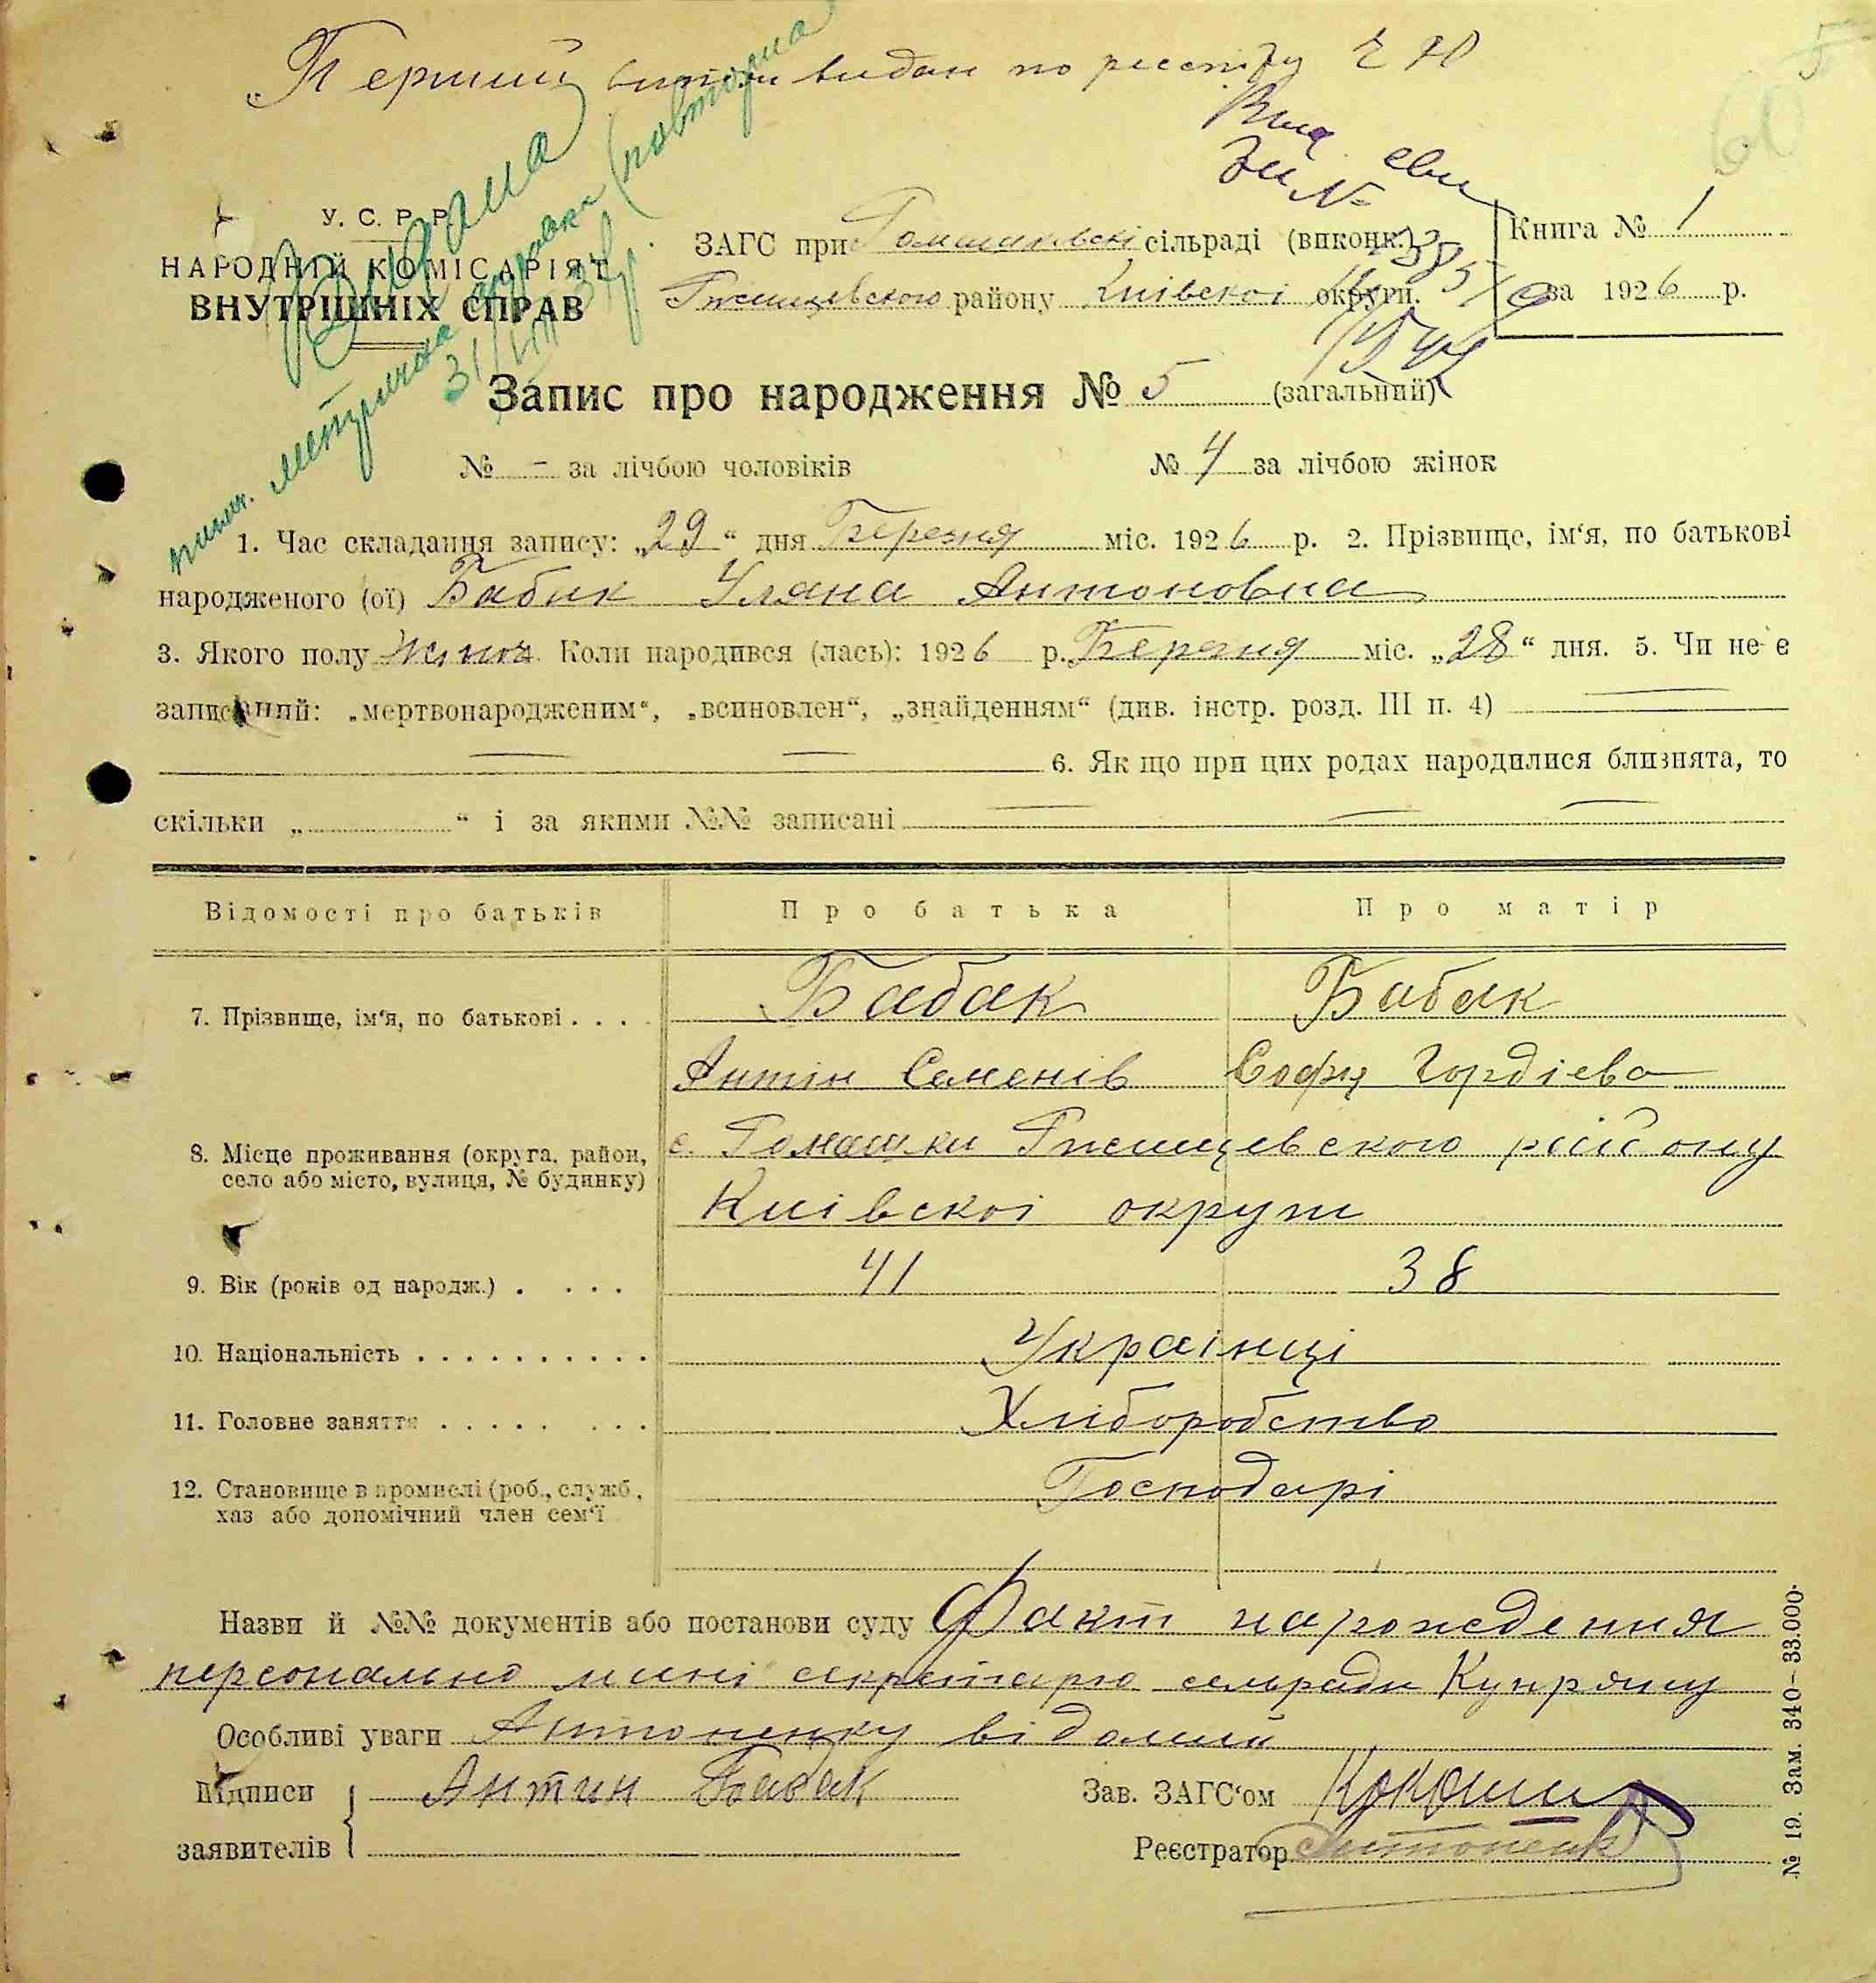 „Перший випис видан по реєстру
5
60
Видана
пит. метрична (повторна
31/VIII 37 р.
У. С. Р. Р.
НАРОДНІЙ КОМІСАРІЯТ
ВНУТРІШНІХ СПРАВ
ЗАГС при Томашівскі сільраді (виконк.)
района Київскоі округи.
Книга № 1
за 1926 р.
Запис про народження № 5 (загальний)
№ - за лічбою чоловіків № 4 за лічбою жінок
1. Час складання запису: „29“ дня Березня міс. 1926 р. 2. Прізвище, ім‘я, по батькові
народженого (ої) Бабак Уляна Антоновна
3. Якого полу Жіноч. Коли народився (лась): 1926 р. Березня міс. „28“ дня. 5. Чи не є
записаний: „мертвонародженим“, „всиновлен“, „знайденням“ (див. інстр. розд. III п. 4)
6. Як що при цих родах народилися близнята, то
скільки „ “ і за якими №№ записані
Відомості про батьків Про батька Про матір
7. Прізвище, ім‘я, по батькові . . . . Бабак Бабак
Антін Семенів Софія Гордієва
8. Місце проживання (округа, район, село або місто, вулиця, № будинку) с. Томашки району
Київскоі округи
9. Вік (років од народж.) . . . . 41 38
10. Національність . . . . . . . . . . Украінці
11. Головне заняття . . . . . . . . Хліборобство
12. Становище в промислі (роб., служб, хаз або допомічний член сем‘ї Господарі
Назви й №№ документів або постанови суду Факт нарождения
персонально мині секретарю сельради Купріяну
Особливі уваги Антоненку відомий
Підписи заявителів Антин Бабак
Зав. ЗАГС‘ом
Реєстратор Антоненк
№ 19. Зам. 340–33.000.